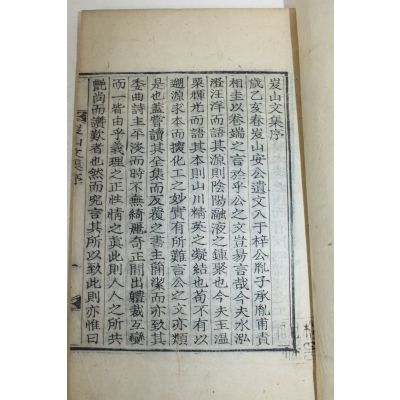 岌山文集序
歲乙亥春岌山安公遺文入于梓公胤子承胤甫責
相圭以卷端之言於乎公之文豈易言哉今夫水泓
澄汪洋而語其源則陰陽融液之鍾聚也今夫玉溫
栗輝光而語其本則山川精英之凝結也苟不有以
遡源求本而擴化工之妙實有所難言公之文亦類
是也蓋嘗讀其全集而反覆之書主簡潔而亦時
委曲詩主平淡而時不無綺麗奇正間出體裁互變
而一皆由乎義理之正性情之眞此則人人之所共
艶尚而讚歎者也然而究言其所以致此則亦惟曰
岌山文集序